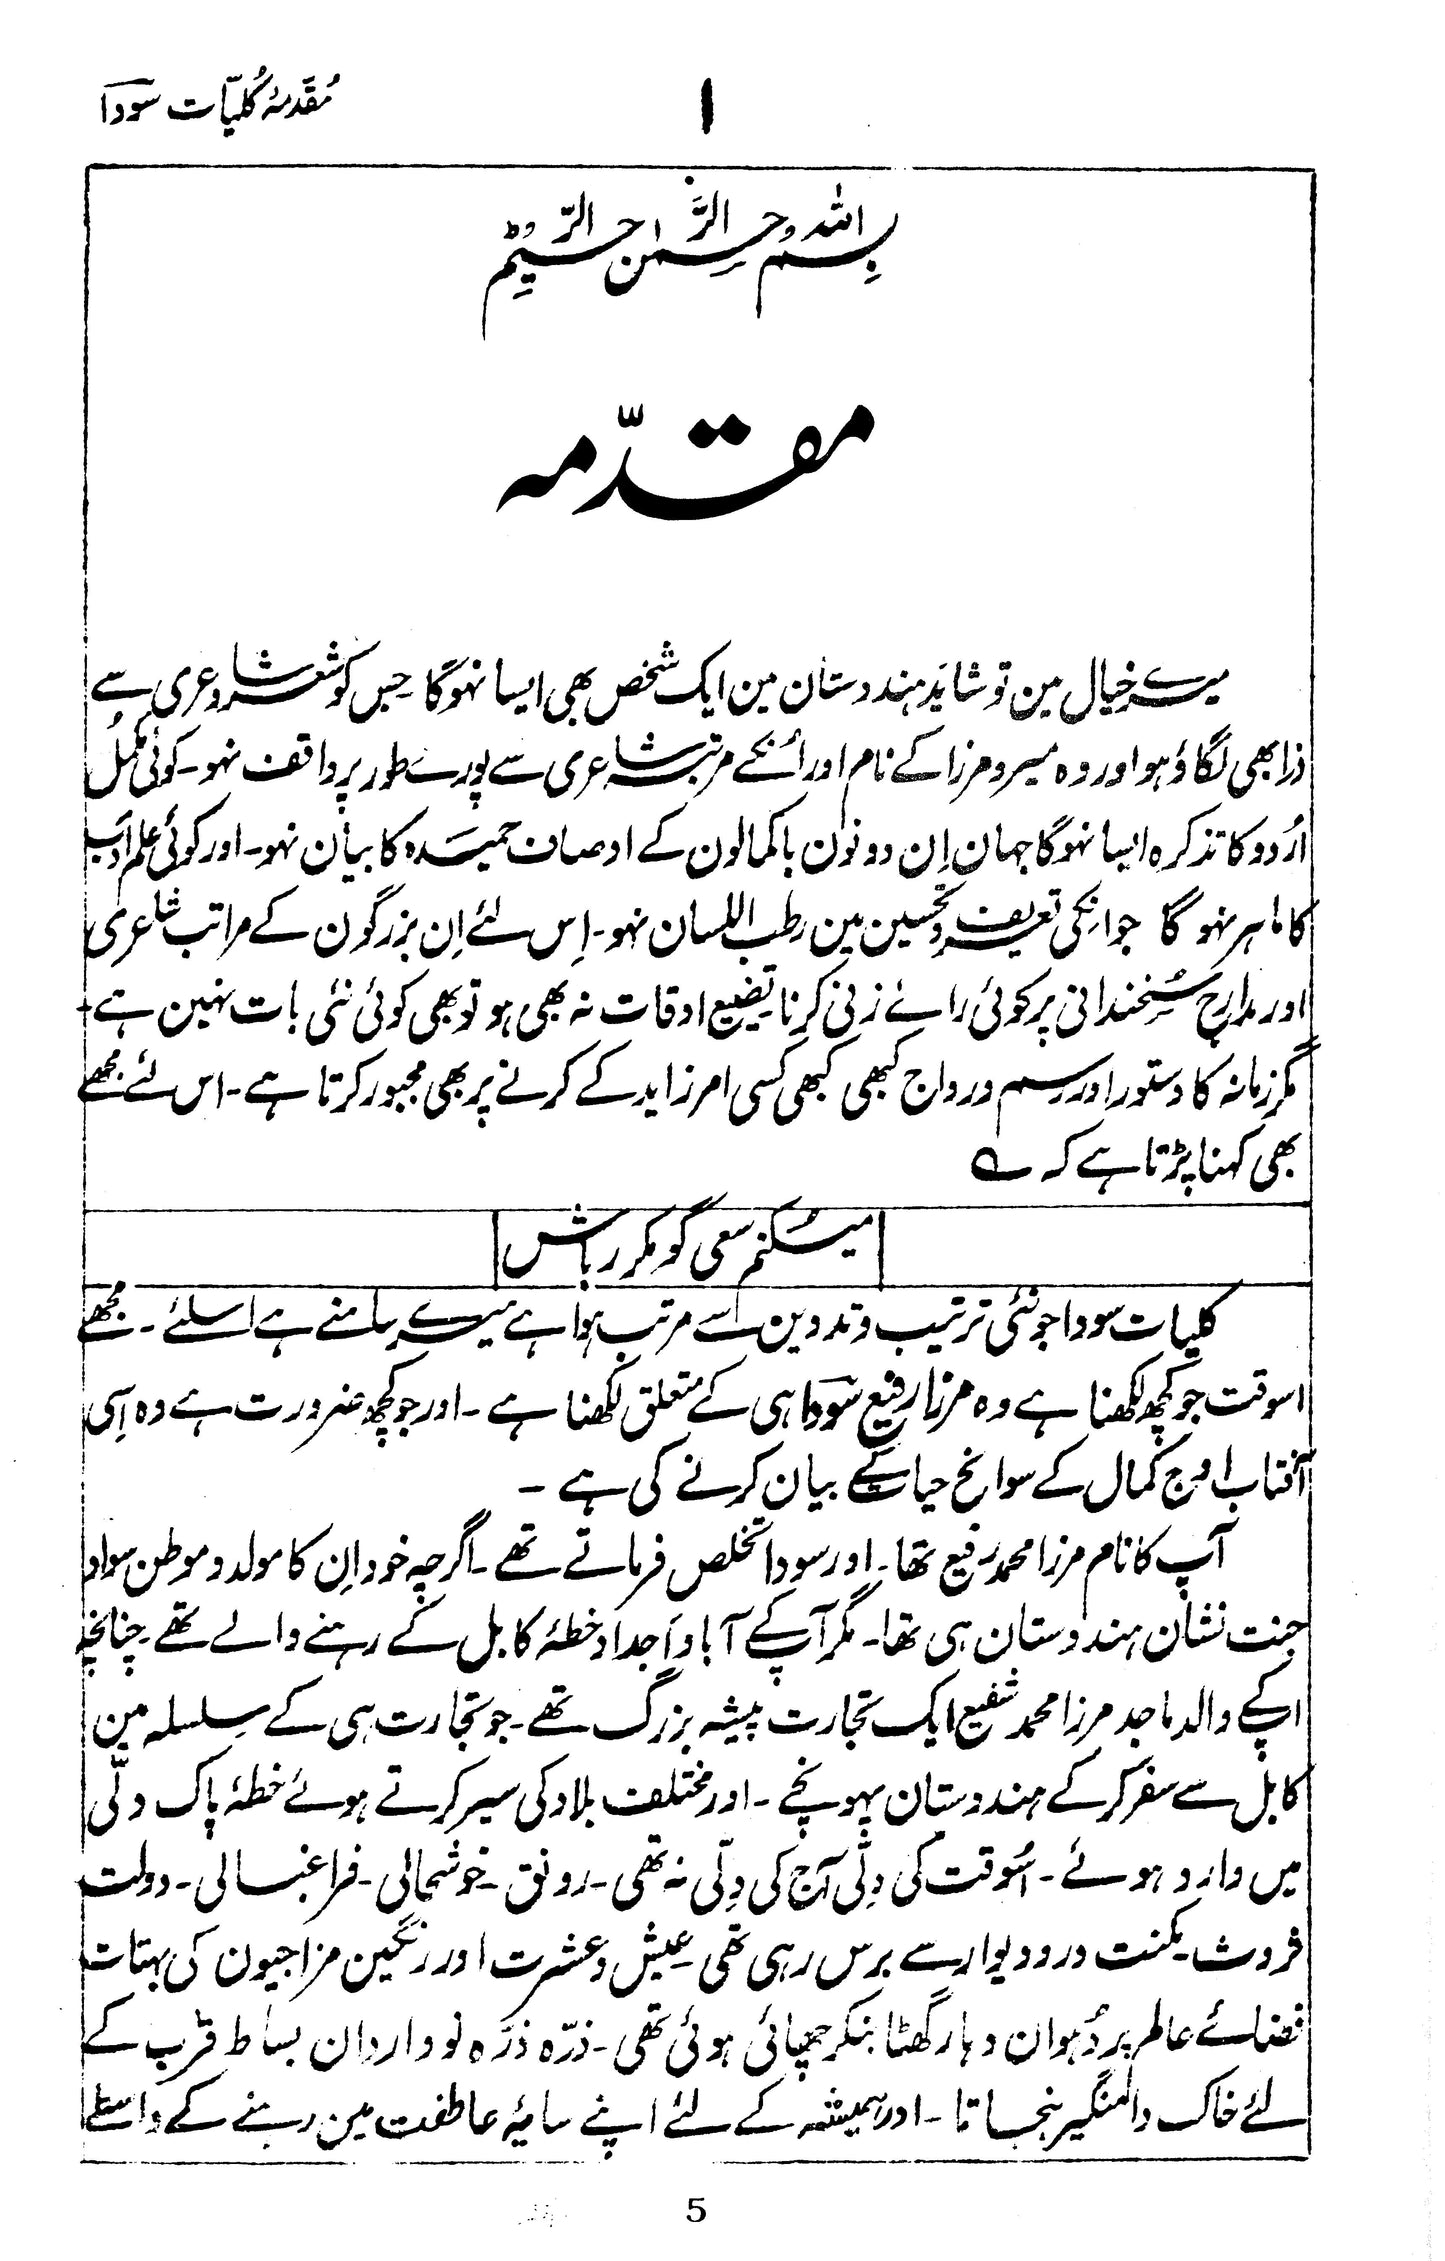 مُقدمۂ کُلیّات سودا
۱
بِسْمِ اللہِ الرَّحْمٰنِ الرَّحِیْمِ
مقدّمہ
میرے خیال مین تو شاید ہندوستان مین ایک شخص بھی ایسا نہوگا جس کو شعر و شاعری سے
ذرا بھی لگاؤ ہو اور وہ میر و مرزا کے نام اور اُنکے مرتبہ شاعری سے پورے طور پر واقف نہو۔ کوئی مکمل
اُردو کا تذکرہ ایسا نہوگا جہان اِن دونون باکمالون کے اوصاف حمیدہ کا بیان نہو۔ اور کوئی علم ادب
کا ماہر نہو گا جو انکی تعریف و تحسین مین رطب اللسان نہو۔ اِس لئے اِن بزرگون کے مراتب شاعری
اور مدارج سُخندانی پر کوئی رائے زنی کرنا تضیع اوقات نہ بھی ہو تو بھی کوئی نئی بات نہین ہے۔
مگر زمانہ کا دستور اور رسم و رواج کبھی کبھی کسی امر زاید کے کرنے پر بھی مجبور کرتا ہے۔ اس لئے مجھے
بھی کہنا پڑتا ہے کہ ؎
میکنم سعی گو مکرر باش
کلیات سودا جو نئی ترتیب و تدوین سے مرتب ہوا ہے میرے سامنے ہے اسلئے۔ مجھے
اسوقت جو کچھ لکھنا ہے وہ مرزا رفیع سودا ہی کے متعلق لکھنا ہے۔ اور جو کچھ ضرورت ہے وہ اِسی
آفتاب اوج کمال کے سوانح حیات کے بیان کرنے کی ہے ۔
آپ کا نام مرزا محمد رفیع تھا۔ اور سودا تخلص فرماتے تھے۔ اگرچہ خود اِن کا مولد و موطن سواد
جنت نشان ہندوستان ہی تھا۔ مگر آپ کے آبا و اَجداد خطۂ کابل کے رہنے والے تھے۔ چنانچہ
اپکے والد ماجد مرزا محمد شفیع ایک تجارت پیشہ بزرگ تھے۔ جو تجارت ہی کے سلسلہ مین
کابل سے سفر کرکے ہندوستان پہونچے ۔ اور مختلف بلاد کی سیر کرتے ہوئے خطۂ پاک دلّی
میں وارد ہوئے ۔ اُسوقت کی دِلّی آج کی دِلّی نہ تھی۔ رونق ۔ خوشحالی ۔ فراغبالی ۔ دولت
ثروت ۔ مکنت در و دیوار سے برس رہی تھی۔ عیش و عشرت اور رنگین مزاجیون کی بہتات
فضائے عالم پر دُہوان دہار گھٹا بنکر چھائی ہوئی تھی۔ ذرّہ ذرّہ نوواردان بساط قرب کے
لئے خاک دامنگیر بنجاتا ۔ اور ہمیشہ کے لئے اپنے سایۂ عاطفت مین رہنے کے واسطے
5